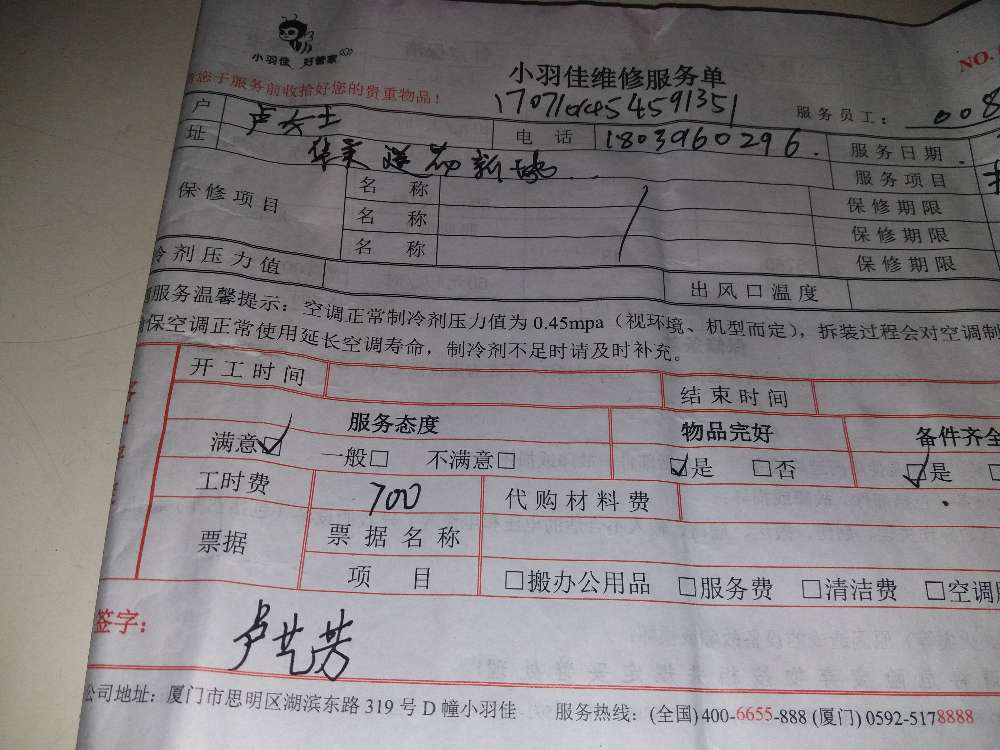 小羽佳 好管家
小羽佳维修服务单
NO.
您于服务前收拾好您的贵重物品！
服务员工： 008
户 卢女士 电 话 1803960296. 服务日期
址 新城 服务项目
保修项目 名 称 保修期限
名 称 保修期限
名 称 保修期限
冷剂压力值 出风口温度
服务温馨提示：空调正常制冷剂压力值为0.45mpa（视环境、机型而定），拆装过程会对空调制
保空调正常使用延长空调寿命，制冷剂不足时请及时补充。
开工时间 结束时间
服务态度 物品完好 备件齐全
满意☑ 一般□ 不满意□ ☑是 □否 ☑是
工时费 700 代购材料费
票据 票据名称
项 目 □搬办公用品 □服务费 □清洁费 □空调
签字： 卢艺芳
公司地址：厦门市思明区湖滨东路319号D幢小羽佳 服务热线：(全国)400-6655-888 (厦门)0592-5178888